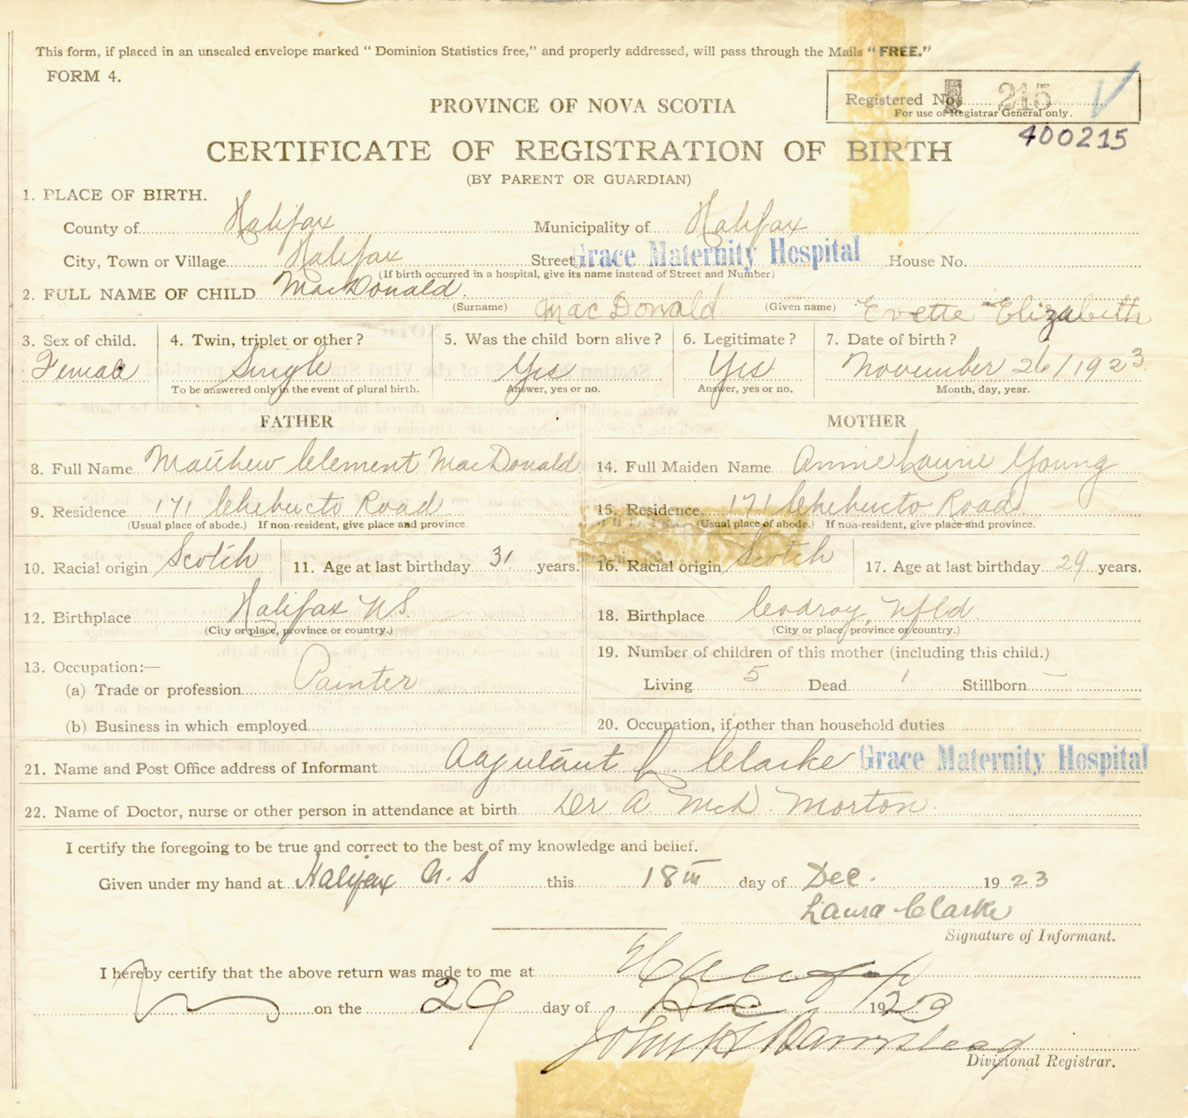 This form, if placed in an unsealed envelope marked “ Dominion Statistics free,” and properly addressed, will pass through the Mails “FREE.”
FORM 4.
Registered No. 215
For use of Registrar General only.
400215
PROVINCE OF NOVA SCOTIA
CERTIFICATE OF REGISTRATION OF BIRTH
(BY PARENT OR GUARDIAN)
1. PLACE OF BIRTH.
County of Halifax Municipality of Halifax
City, Town or Village Halifax Street Grace Maternity Hospital House No.
(If birth occurred in a hospital, give its name instead of Street and Number)
2. FULL NAME OF CHILD MacDonald
(Surname) MacDonald (Given name) Evette Elizabeth
3. Sex of child. 4. Twin, triplet or other? 5. Was the child born alive? 6. Legitimate? 7. Date of birth?
Female Single Yes Yes November 26/1923
To be answered only in the event of plural birth. Answer, yes or no. Answer, yes or no. Month, day, year.
FATHER MOTHER
8. Full Name Matthew Clement MacDonald 14. Full Maiden Name Annie Laurie Young
9. Residence 171 Chebucto Road 15. Residence 171 Chebucto Road
(Usual place of abode.) If non-resident, give place and province. (Usual place of abode.) If non-resident, give place and province.
10. Racial origin Scotch 11. Age at last birthday 31 years. 16. Racial origin Scotch 17. Age at last birthday 29 years.
12. Birthplace Halifax N.S. 18. Birthplace Codroy, Nfld
(City or place, province or country.) (City or place, province or country.)
13. Occupation:— 19. Number of children of this mother (including this child.)
(a) Trade or profession Painter Living 5 Dead 1 Stillborn –
(b) Business in which employed 20. Occupation, if other than household duties
21. Name and Post Office address of Informant Adjutant L Clarke Grace Maternity Hospital
22. Name of Doctor, nurse or other person in attendance at birth Dr A. McD. Morton
I certify the foregoing to be true and correct to the best of my knowledge and belief.
Given under my hand at Halifax N.S this 18th day of Dec. 1923
Laura Clarke
Signature of Informant.
I hereby certify that the above return was made to me at Halifax
on the 29 day of Dec 1923
John H Barnstead
Divisional Registrar.